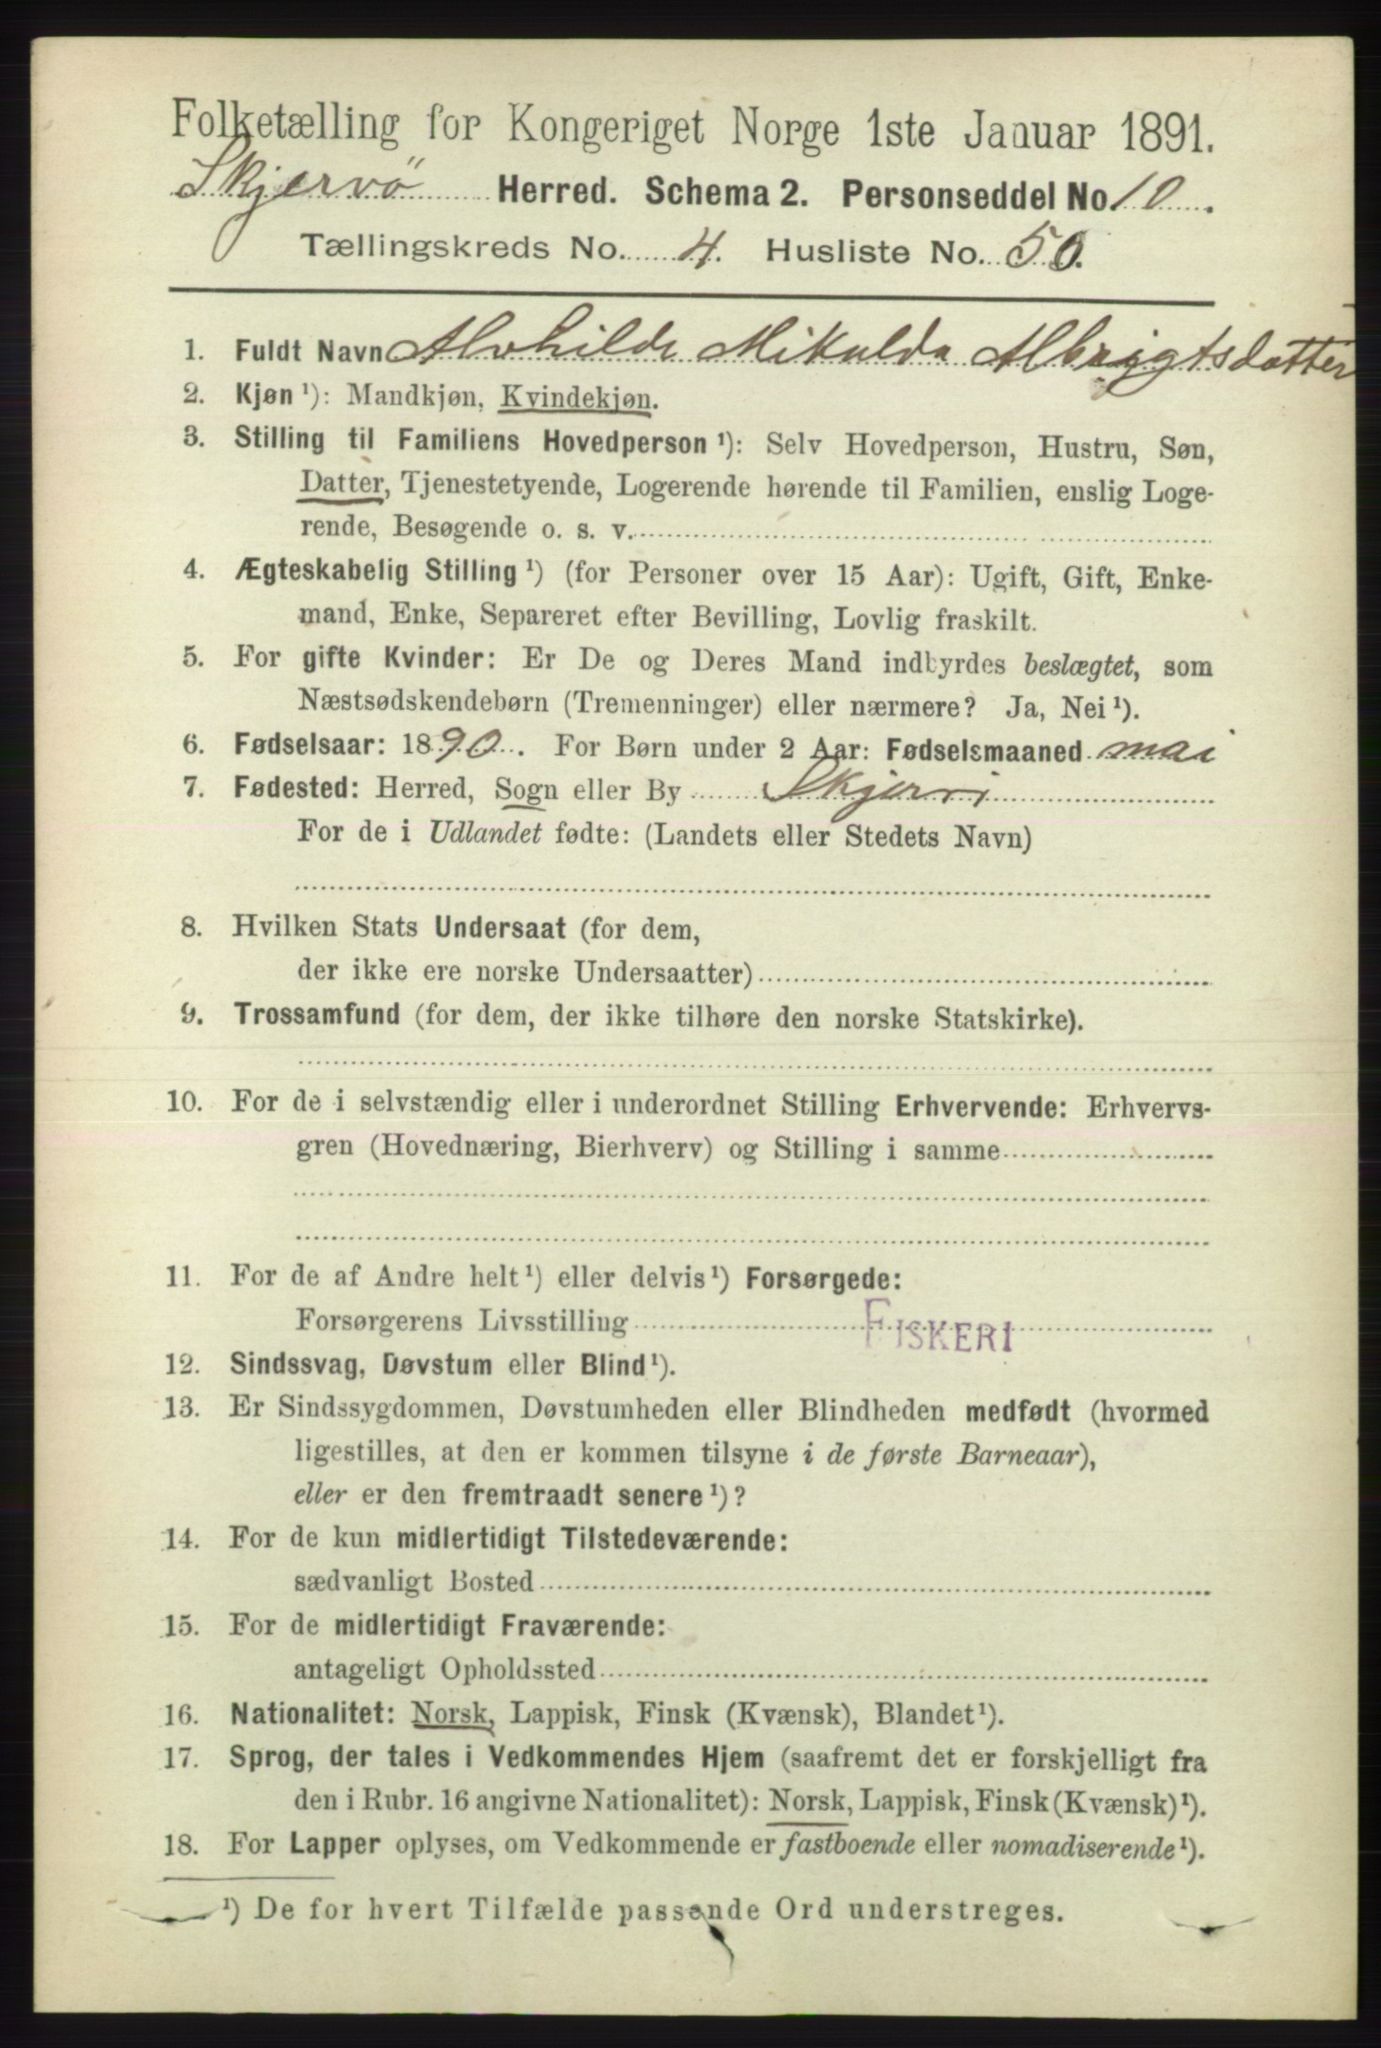 Folketælling for Kongeriget Norge 1ste Januar 1891.
Skjervö Herred. Schema 2. Personseddel No 10.
Tællingskreds No. 4. Husliste No. 50.
1. Fuldt Navn Alvhilde Mikalda Albrigtsdatter
2. Kjøn ¹): Mandkjøn, Kvindekjøn.
3. Stilling til Familiens Hovedperson ¹): Selv Hovedperson, Hustru, Søn,
Datter, Tjenestetyende, Logerende hørende til Familien, enslig Loge-
rende, Besøgende o. s. v.
4. Ægteskabelig Stilling ¹) (for Personer over 15 Aar): Ugift, Gift, Enke-
mand, Enke, Separeret efter Bevilling, Lovlig fraskilt.
5. For gifte Kvinder: Er De og Deres Mand indbyrdes beslægtet, som
Næstsødskendebørn (Tremenninger) eller nærmere? Ja, Nei ¹).
6. Fødselsaar: 1890. For Børn under 2 Aar: Fødselsmaaned mai
7. Fødested: Herred, Sogn eller By Skjervi
For de i Udlandet fødte: (Landets eller Stedets Navn)
8. Hvilken Stats Undersaat (for dem,
der ikke ere norske Undersaatter)
9. Trossamfund (for dem, der ikke tilhøre den norske Statskirke).
10. For de i selvstændig eller i underordnet Stilling Erhvervende: Erhvervs-
gren (Hovednæring, Bierhverv) og Stilling i samme
11. For de af Andre helt ¹) eller delvis ¹) Forsørgede:
Forsørgerens Livsstilling FISKERI
12. Sindssvag, Døvstum eller Blind ¹).
13. Er Sindssygdommen, Døvstumheden eller Blindheden medfødt (hvormed
ligestilles, at den er kommen tilsyne i de første Barneaar),
eller er den fremtraadt senere ¹)?
14. For de kun midlertidigt Tilstedeværende:
sædvanligt Bosted
15. For de midlertidigt Fraværende:
antageligt Opholdssted
16. Nationalitet: Norsk, Lappisk, Finsk (Kvænsk), Blandet ¹).
17. Sprog, der tales i Vedkommendes Hjem (saafremt det er forskjelligt fra
den i Rubr. 16 angivne Nationalitet): Norsk, Lappisk, Finsk (Kvænsk) ¹).
18. For Lapper oplyses, om Vedkommende er fastboende eller nomadiserende ¹).
¹) De for hvert Tilfælde passende Ord understreges.